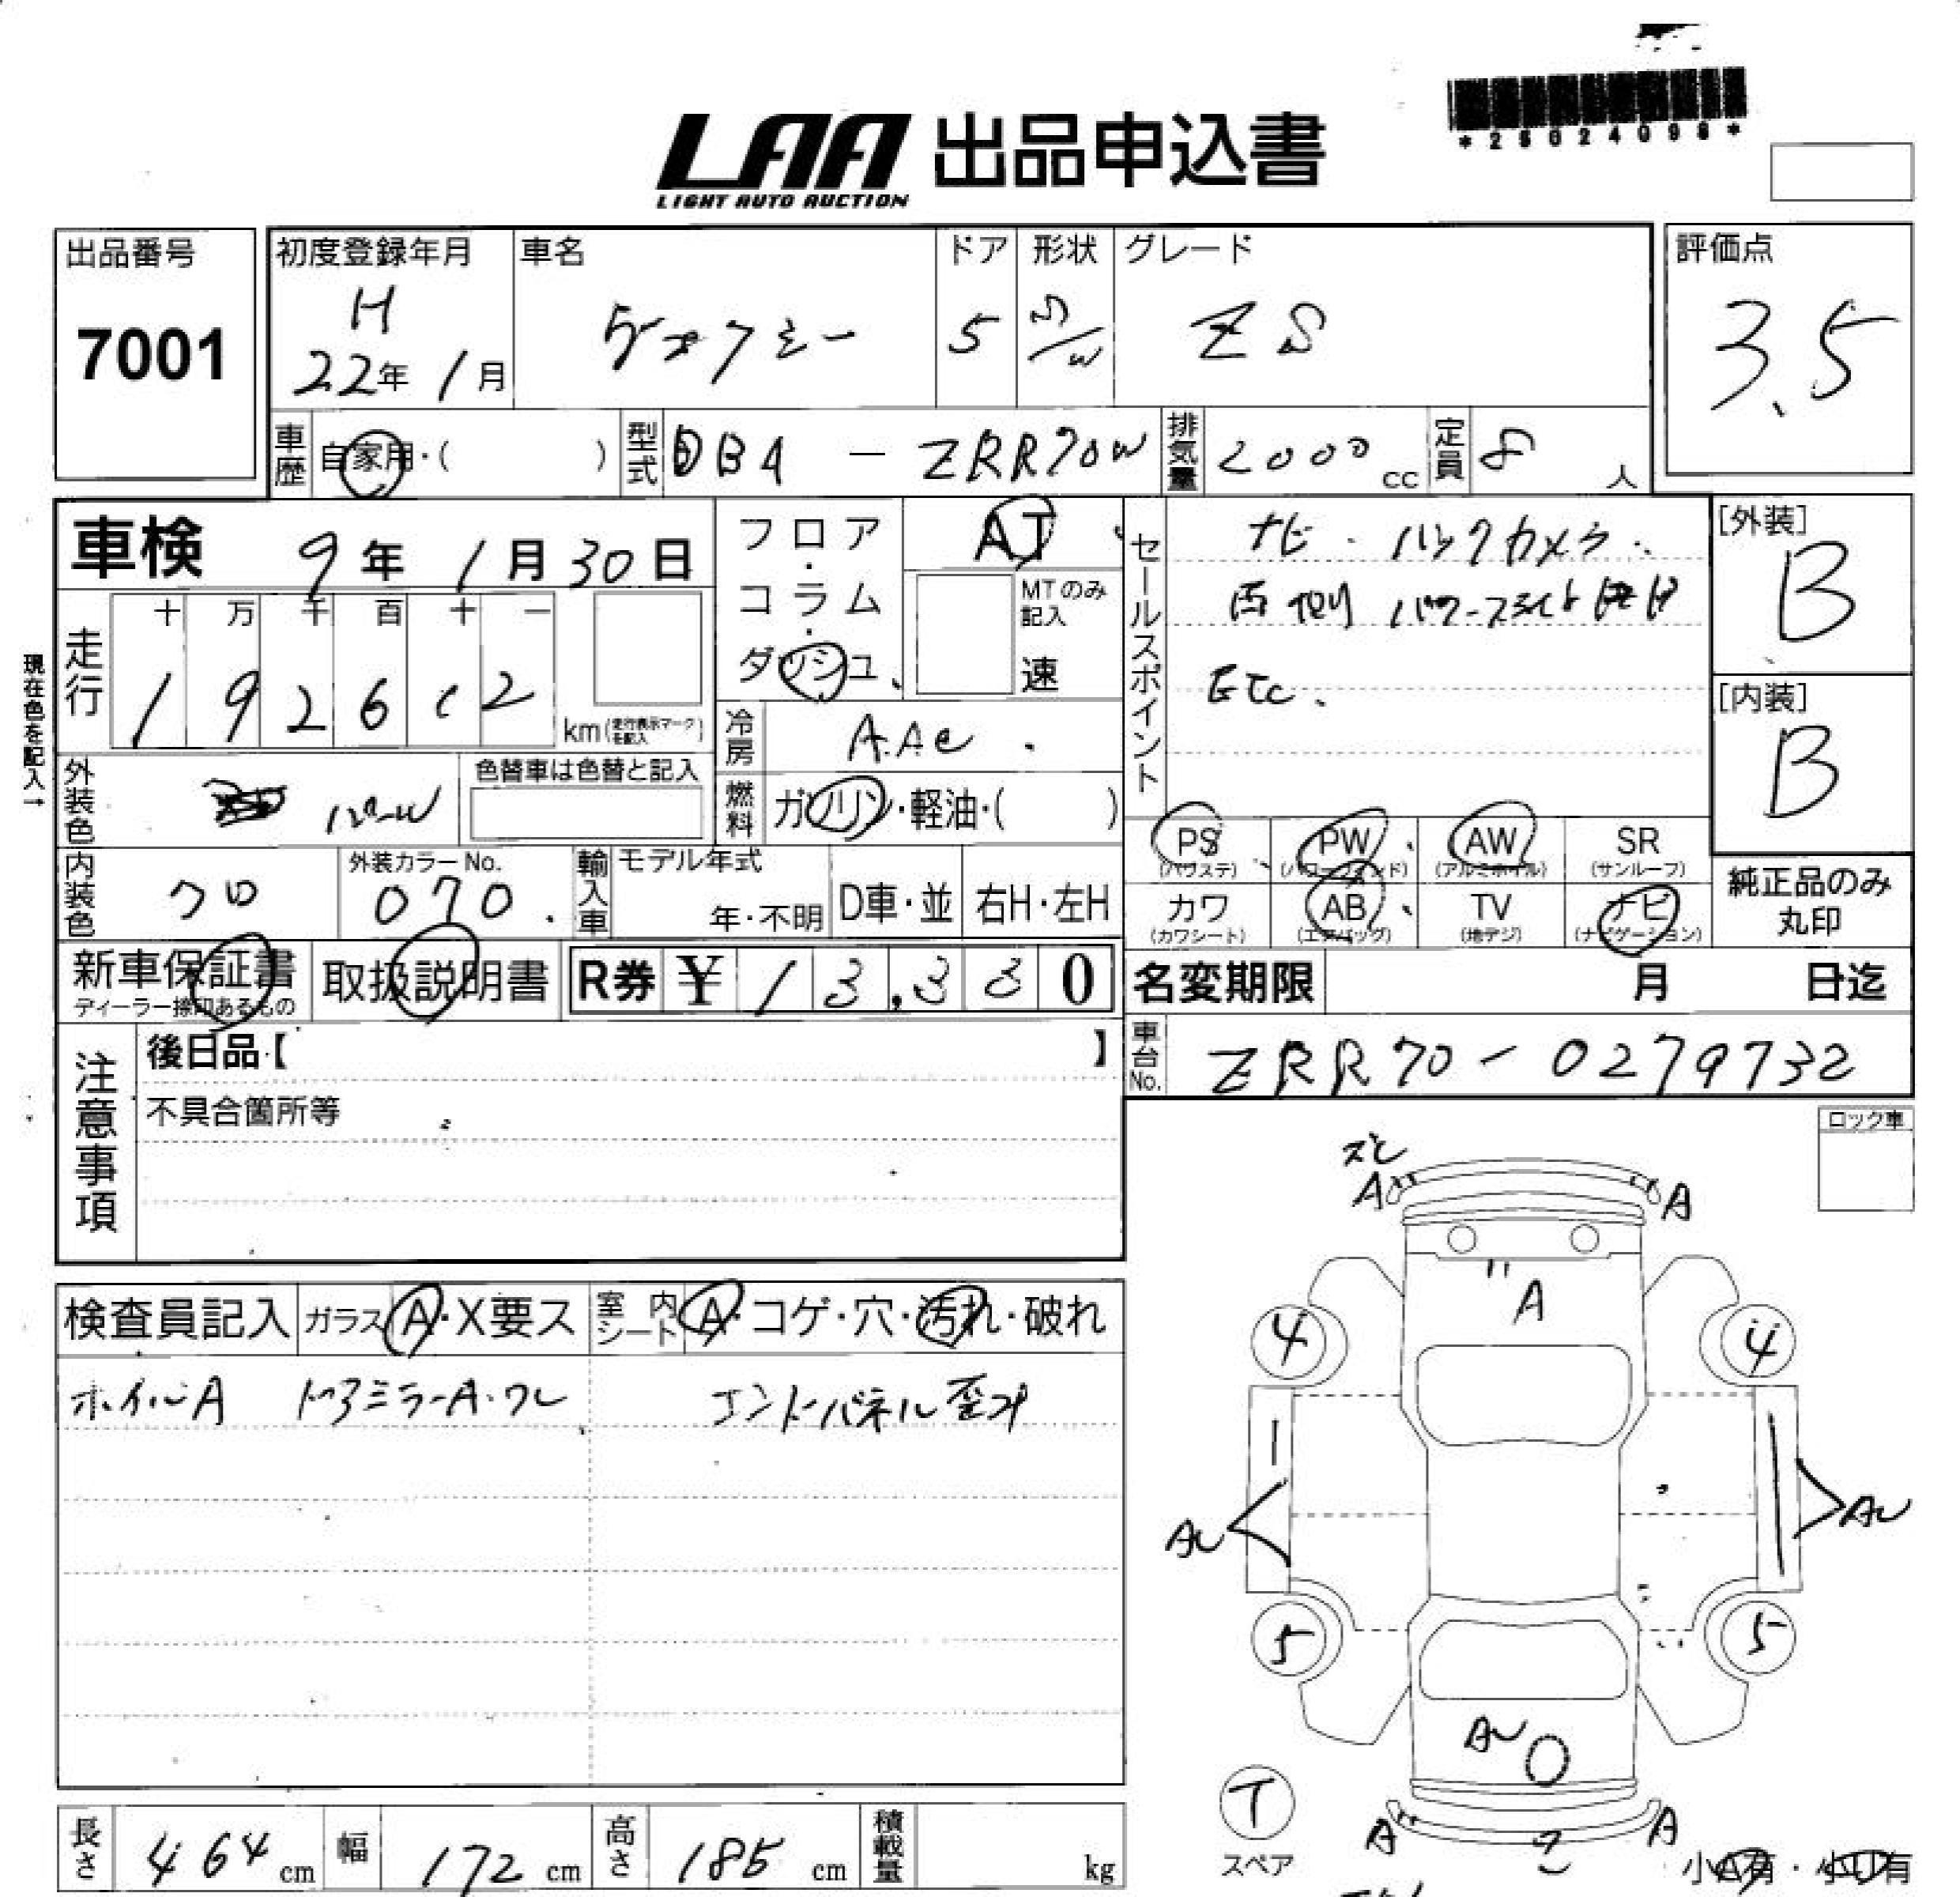 *25024098*
LAA 出品申込書
LIGHT AUTO AUCTION
出品番号 7001
初度登録年月 H 22年 1月
車名 ヴォクシー
ドア 5
形状 S/W
グレード ZS
評価点 3.5
車歴 自家用・( )
型式 DBA - ZRR70W
排気量 2000 cc
定員 8 人
車検 9年 1月 30日
フロア・コラム・ダッシュ
AT
MTのみ記入
速
セールスポイント
ナビ・バックカメラ
両側パワースライド
ETC.
[外装] B
[内装] B
現在色を記入→
走行 十 万 千 百 十 一
km(走行表示マークを記入)
冷房 A.AC
外装色 パールW
色替車は色替と記入
燃料 ガソリン・軽油・( )
内装色 クロ
外装カラーNo. 070
輸入車 モデル年式 年・不明
D車・並 右H・左H
PS (パワステ)
PW (パワーウィンド)
AW (アルミホイル)
SR (サンルーフ)
カワ (カワシート)
AB (エアバッグ)
TV (地デジ)
ナビ (ナビゲーション)
純正品のみ丸印
新車保証書
ディーラー捺印あるもの
取扱説明書
R券 ¥
名変期限 月 日迄
車台No. ZRR70-0279732
注意事項
後日品【 】
不具合箇所等
ロック車
検査員記入
ガラス A・X要ス
室内シート A・コゲ・穴・汚れ・破れ
ホイルA ドアミラーA・ワレ エンドパネル歪み
A
A
A
4
4
AU
AU
5
5
AU
T
スペア
A
A
長さ 464 cm
幅 172 cm
高さ 185 cm
積載量 kg
小A有・小U有